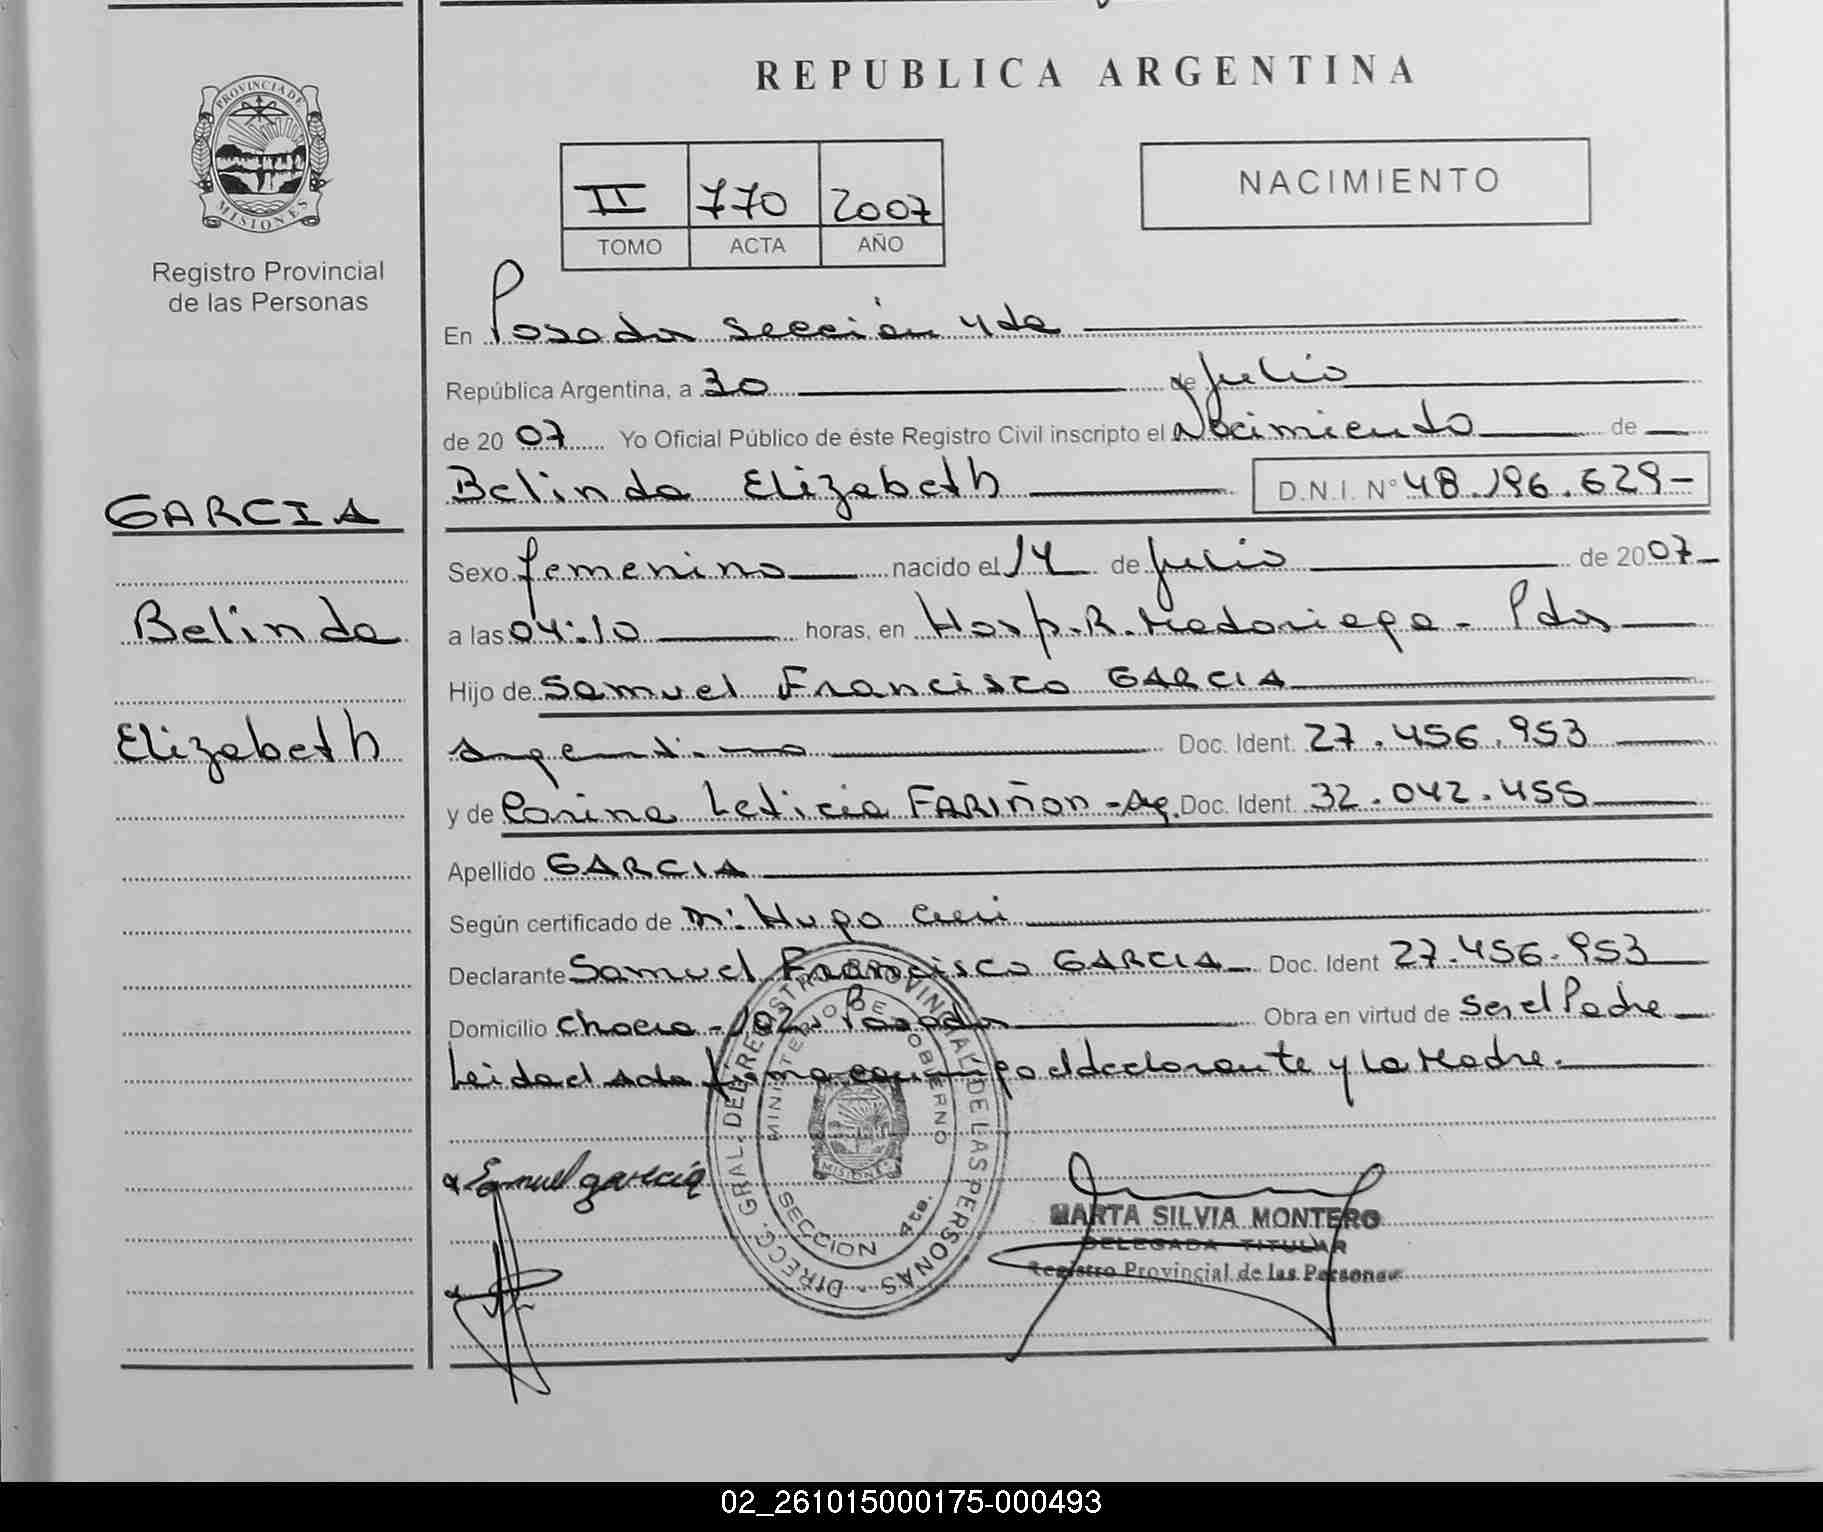 REPUBLICA ARGENTINA
PROVINCIA DE
MISIONES
Registro Provincial
de las Personas
II 770 2007
TOMO ACTA AÑO
NACIMIENTO
En Posadas Sección 4ta
República Argentina, a 30 de Julio
de 2007 Yo Oficial Público de éste Registro Civil inscripto el Nacimiento de
Belinda Elizabeth D.N.I. N° 48.196.629-
GARCIA
Belinda
Elizabeth
Sexo femenino nacido el 14 de Julio de 2007
a las 04:10 horas, en Hosp. R. Madariaga - Pdas
Hijo de Samuel Francisco GARCIA
Argentino Doc. Ident. 27.456.953
y de Carina Leticia FARIÑAS - Ag. Doc. Ident. 32.042.455
Apellido GARCIA
Según certificado de M: Hugo
Declarante Samuel Francisco GARCIA Doc. Ident 27.456.953
Domicilio Chaco - 102 Posadas Obra en virtud de Ser el Padre
Leida el acta firma conmigo el declarante y la Madre.
DIRECC. GRAL. DEL REGISTRO PROVINCIAL DE LAS PERSONAS
MINISTERIO DE GOBIERNO
MISIONES
SECCION 4ta.
Samuel garcia
MARTA SILVIA MONTERO
DELEGADA TITULAR
Registro Provincial de las Personas
02_261015000175-000493